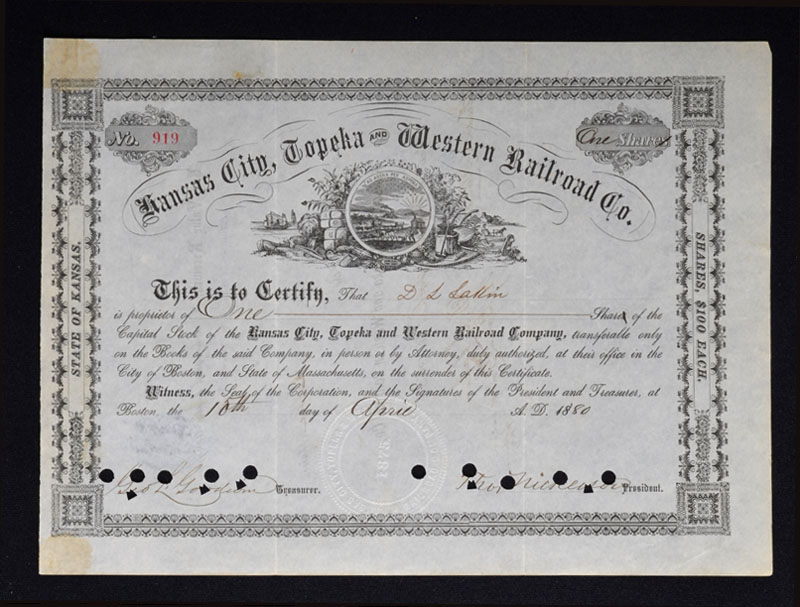 No. 919
One Shares
Kansas City, Topeka AND Western Railroad Co.
STATE OF KANSAS.
SHARES, $100 EACH.
This is to Certify, That D L Lakin
is proprietor of One Share of the
Capital Stock of the Kansas City, Topeka and Western Railroad Company, transferable only
on the Books of the said Company, in person or by Attorney, duly authorized, at their office in the
City of Boston, and State of Massachusetts, on the surrender of this Certificate.
Witness, the Seal of the Corporation, and the Signatures of the President and Treasurer, at
Boston, the 10th day of April A. D. 1880
1875
Treasurer.
President.